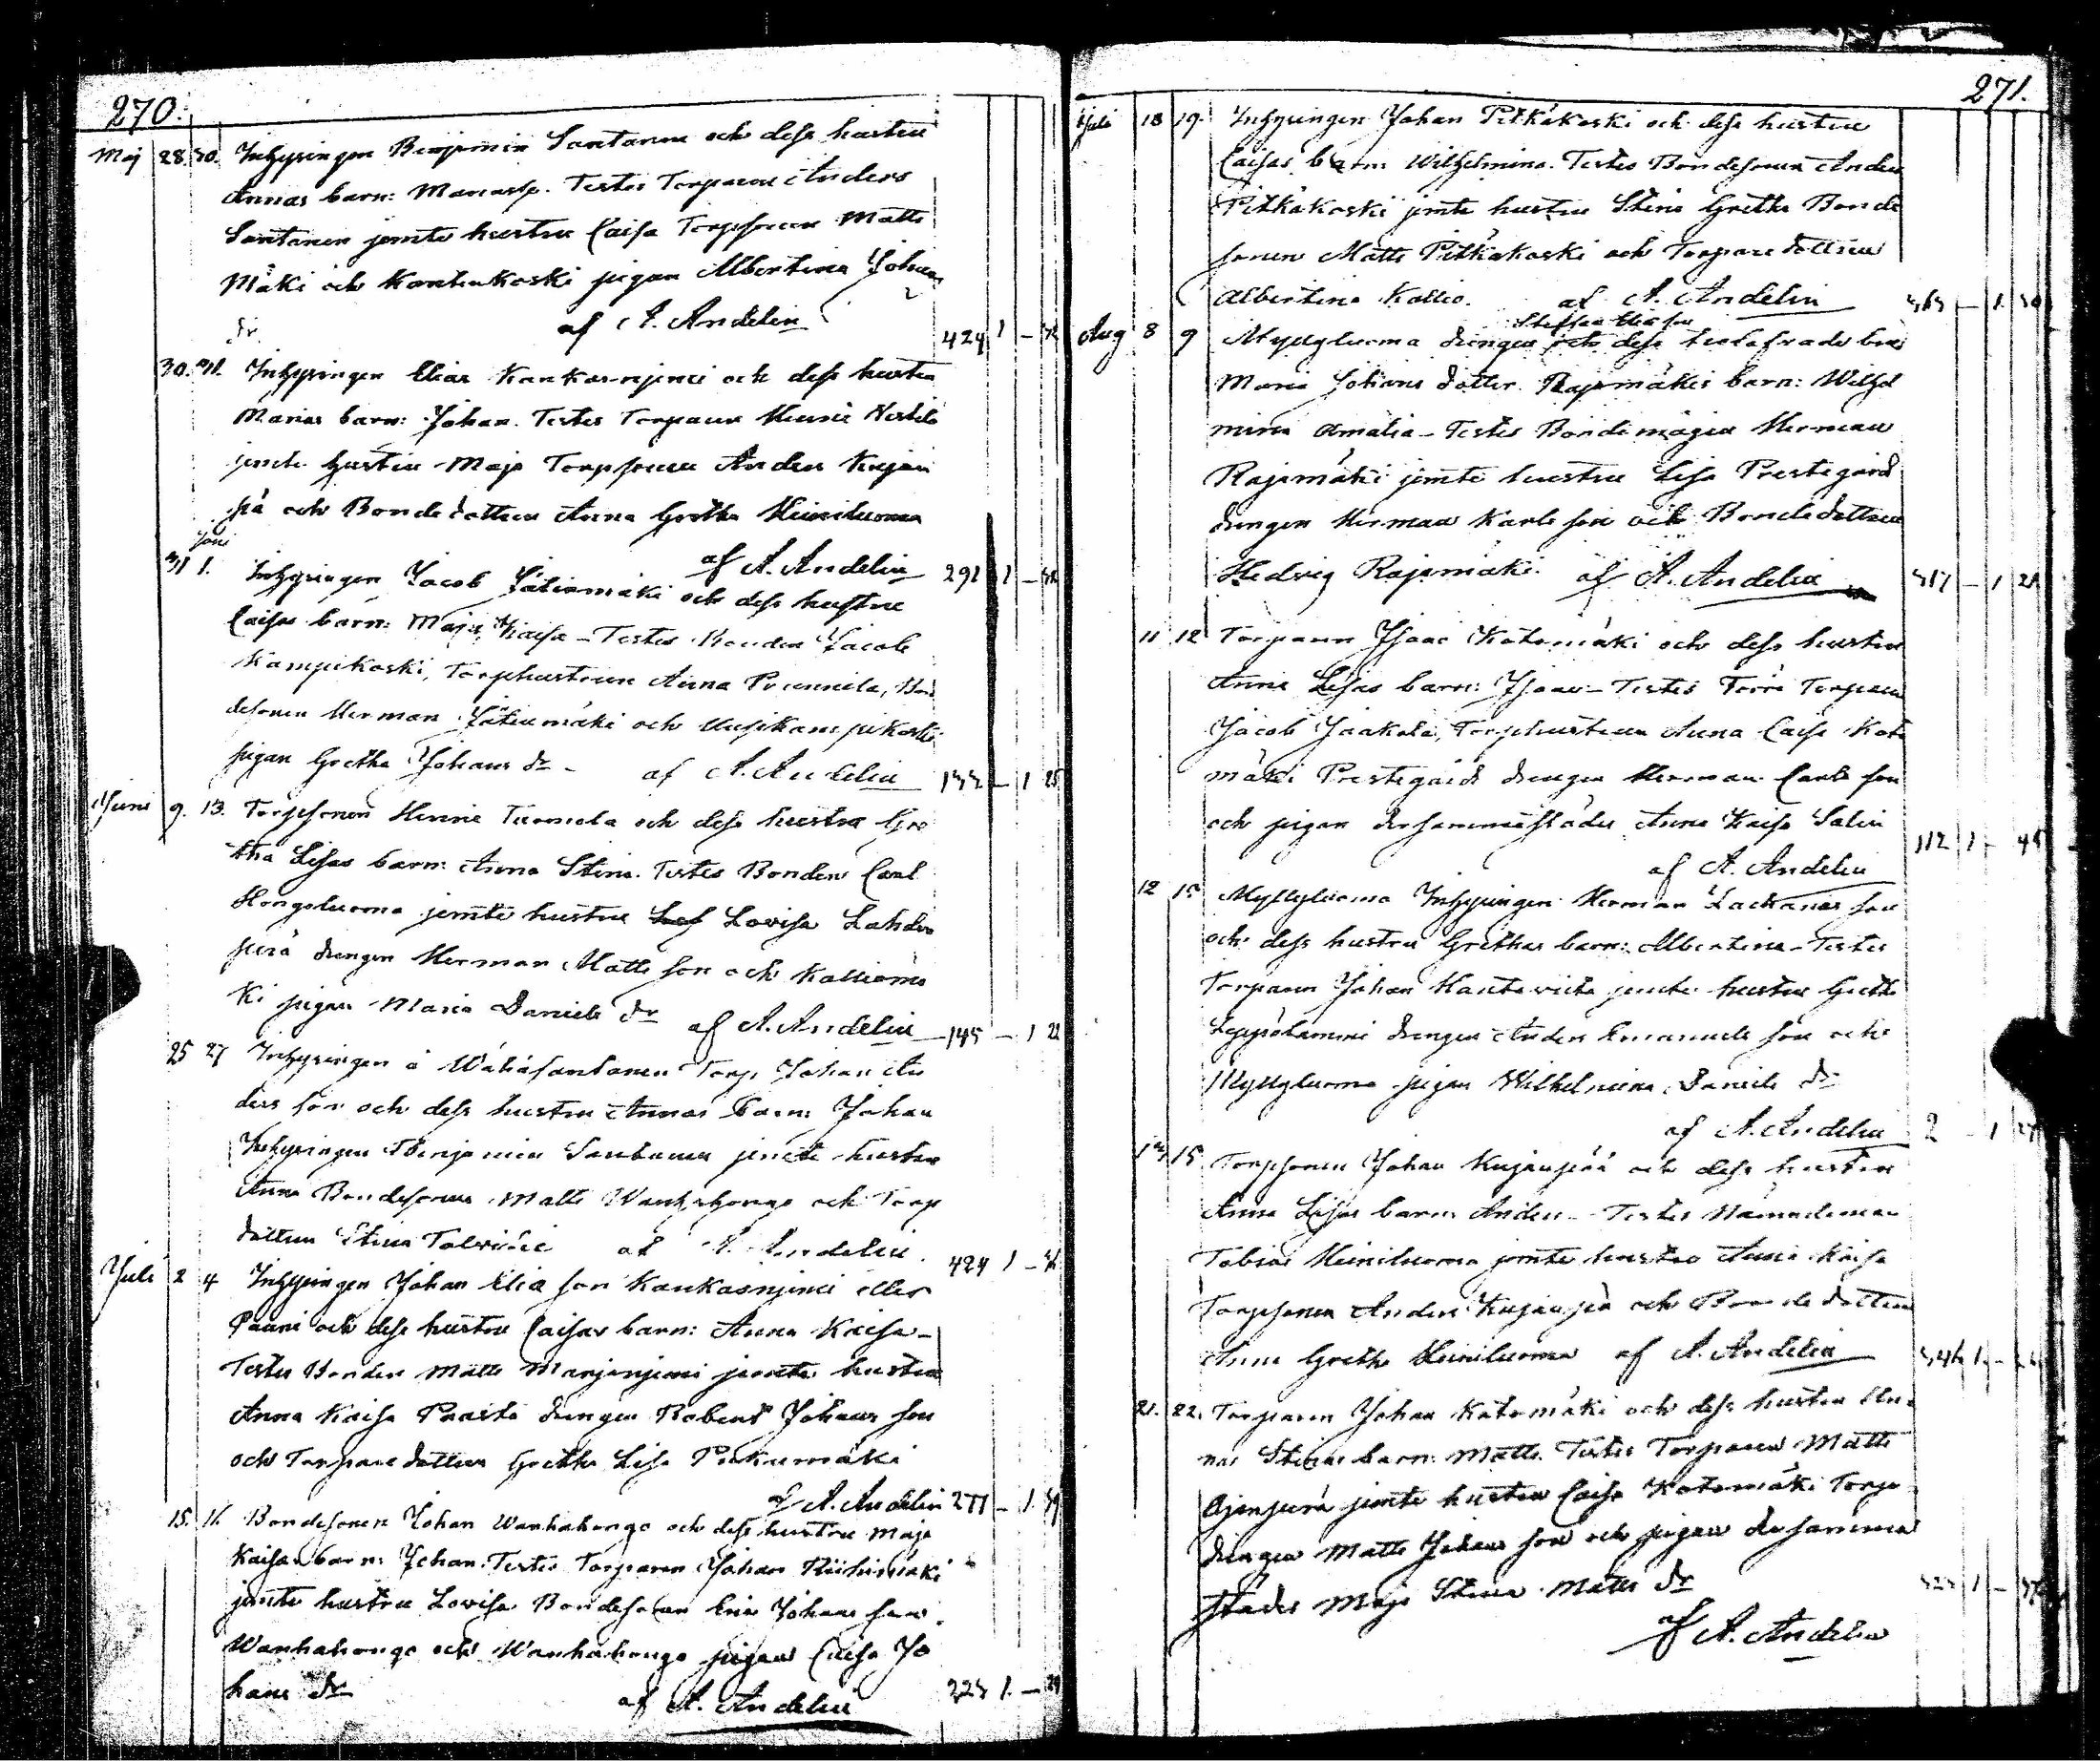 270.
Maj 28. 30. Inhysingen Benjamin Santanen och dess hustru
Annas barn: Manasse. Testes Torparen Anders
Santanen jemte hustru Caisa Torpsonen Matts
Mäki och Kantenkoski pigan Albertina Johans
dr. af A. Andelin 424 1 –
30. 31. Inhysingen Elias Kankasnjemi och dess hustru
Marias barn: Johan. Testes Torparen Henric
jemte hustru Maja Torpsonen Anders Kujan
pä och Bondedottren Anna Gretha Heiniluoma
af A. Andelin 291 1 –
Juni
31 1. Inhysingen Jacob Jätinmäki och dess hustru
Caisas barn: Maja Kaisa – Testes Bonden Jacob
Kampikoski, Torphustrun Anna Prunnila, Bon
desonen Herman Jätinmäki och Uusikampikoski
pigan Gretha Johans dr – af A. Andelin 133 – 1 25
Juni 9. 13. Torpsonen Henric Tuomela och dess hustru Gre
tha Lisas barn: Anna Stina. Testes Bonden Carl
Hongoluoma jemte hustru Lovisa Lahden
perä drengen Herman Matts son och Kalliomä
ki pigan Maria Daniels dr af A. Andelin 145 – 1 22
25 27 Inhysingen å Wähäsantanen Torp Johan An
ders son och dess hustru Annas barn: Johan
Inhysingen Benjamin Santanen jemte hustru
Anna Bondesonen Matts Wanhahongo och Torp
dottren Stina Talvitie af A. Andelin 424 1 –
Juli 2 4 Inhysingen Johan Elia son Kankasnjemi eller
Pauni och dess hustru Caisas barn: Anna Kaisa –
Testes Bonden Matts Marjanjemi jemte hustru
Anna Kaisa Prasto drengen Robert Johans son
och Torparedottren Gretha Lisa Pukumäki
af A. Andelin 277 – 1. 39
15. 16. Bondesonen Johan Wanhahongo och dess hustru Maja
Kaisas barn: Johan. Testes Torparen Johan Riihimäki
jemte hustru Lovisa Bondesonen Eric Johans son
Wanhahongo och Wanhahongo pigan Caisa Jo
hans dr af A. Andelin 223 1. – 29
271.
Juli 18 19. Inhysingen Johan Pitkäkoski och dess hustru
Caisas barn: Wilhelmina. Testes Bondesonen Anders
Pitkäkoski jemte hustru Stina Gretha Bonde
sonen Matts Pitkäkoski och Torparedottren
Albertina Kallio. af A. Andelin – 1.
Aug 8 9 Myllyluoma drengen Staffan Elia son och dess trolofvade bru
Maria Johans dotter Rajamäkis barn: Wilhel
mina Amalia – Testes Bondemågen Herman
Rajamäki jemte hustru Lisa Prestegård
drengen Herman Karls son och Bondedottren
Hedvig Rajamäki. af A. Andelin 317 – 1 21
11 12 Torparen Isaac Katomäki och dess hustru
Anna Lisas barn: Isaac – Testes Förre Torparen
Jacob Jaakola, Torphustrun Anna Caisa Kato
mäki Prestegårds drengen Herman Carls son
och pigan dersammastädes Anna Kaisa Salin
af A. Andelin 112 1 – 45
12 15 Myllyluoma Inhysingen Herman Zacharias son
och dess hustru Grethas barn: Albertina – Testes
Torparen Johan Hautaviita jemte hustru Gretha
Leppälammi drengen Anders Emanuels son och
Myllyluoma pigan Wilhelmina Daniels dr
af A. Andelin 2 – 1 27
13 15 Torpsonen Johan Kujanpää och dess hustru
Anna Lisas barn: Anders – Testes Nämndeman
Tobias Heiniluoma jemte hustru Anna Kaisa
Torpsonen Anders Kujanpä och Bondedottren
Anna Gretha Heiniluoma af A. Andelin 346 1 –
21. 22. Torparen Johan Katomäki och dess hustru An
nas Stinas barn: Matts. Testes Torparen Matts
Ojanperä jemte hustru Caisa Katomäki Torp
drengen Matts Johans son och pigan dersamma
städes Maja Stina Matts dr 1 –
af A. Andelin